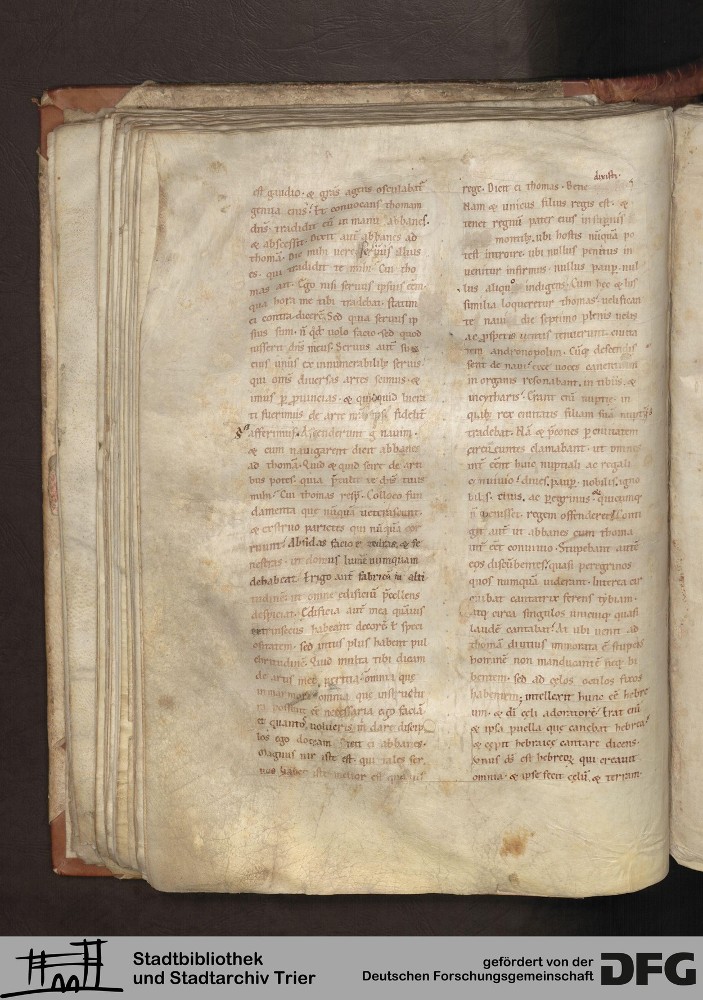 est gaudio. & gr̄as agens osculabat̄
genua eius. Et convocans thomam
dn̄s. tradidit eū in manu abbanes.
& abscessit. Dixit aut̄ abbanes ad
thomā. Dic mihi vere servus illius
es. qui tradidit te mihi. Cui tho
mas ait. Ego nisi servus ipsius eēm
qua hora me tibi tradebat. statim
ei contra dicerē. Sed quia servus ip
sius sum. n̄ qd̄ volo facio. sed quod
iusserit dn̄s meus. Servus aut̄
eius unus ex innumerabilib; servis
qui om̄s diversas artes scimus. &
imus p̄ p̄vincias. & quidquid lucra
ti fuerimus de arte
afferimus. Ascenderunt g̊ navim.
& cum navigarent dicit abbanes
ad thomā. Quid & quid scire de arti
bus potes.
mihi. Cui thomas resp̄. Colloco fun
damenta que nūquā veterescunt.
& exstruo parietes qui nūquā cor
ruunt. Absidas facio & & fe
nestras. ut domus lumē numquam
debabeat. Erigo aut̄ fabricā in alti
tudinē. ut omne edificiū p̄cellens
despiciat. Edificia aut̄ mea quāvis
extrinsecus habeant decorē & speci
ositatem. sed intus plus habent pul
chritudinē. Quid multa tibi dicam
de artis meę peritia. omnia que
in marmore. omnia que instructu
ra possunt eē necessaria ego faciā
et quantos volueris m̄ dare discip̄
los ego doceam. Dicit ei abbanes.
Magnus vir iste est. qui tales ser
vos habet
dixisti.
rege. Dicit ei thomas. Bene
Nam & unicus filius regis est. &
tenet regnū patris eius in
montib;. ubi hostis nūquā po
test introire. ubi nullus penitus in
venitur infirmus. nullus paup̄. nul
lus aliquo indigens. Cum hęc & his
similia loqueretur thomas. velifican
te navi die septimo plenis velis
ac p̄speris ventis venerunt. civita
tem andronopolim. Cūq; descendis
sent de navi. ecce voces canentium
in organis resonabant. in tibiis. &
in cytharis. Erant eni nuptie in
quib; rex civitatis filiam suā nuptiis
tradebat. Nā & p̄cones p̄ civitatem
circūeuntes clamabant. ut omnes
int̄ eēnt huic nuptiali ac regali
convivio. dives. paup̄. nobilis. igno
bilis. civis. ac peregrinus. & quicunq;
n̄ venisset. regem offenderet. Conti
git aut̄ ut abbanes cum thoma
int̄ eēt convivio. Stupebant autē
eos discūbentes. quasi peregrinos
quos numquā viderant. Interea cir
cuibat cantatrix ferens tybiam.
atq; circa singulos unicuiq; quasi
laudē cantabat. At ubi venit ad
thomā diutius immorata ē. stupens
hominē non manducantē neq; bi
bentem. sed ad celos oculos fixos
habentem. intellexit hunc eē hebre
um. & dī celi adoratorē. Erat eni
& ipsa puella que canebat hebrea.
& cepit hebraice cantare dicens.
Vnus ds̄ est hebreoꝝ qui creavit
omnia. & ipse fecit celū. & terram.
Stadtbibliothek
und Stadtarchiv Trier
gefördert von der
Deutschen Forschungsgemeinschaft
DFG